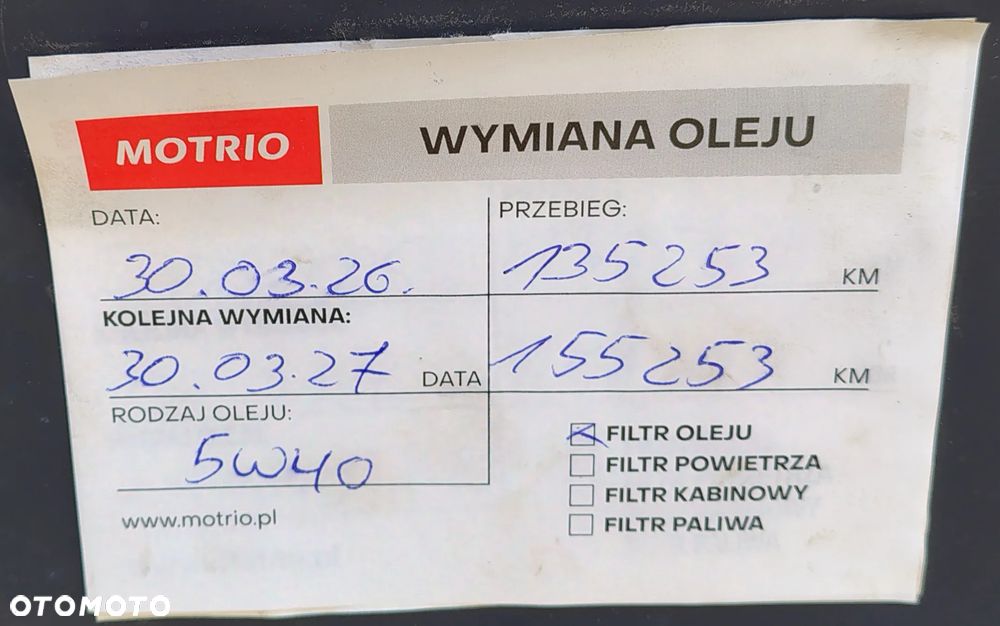 MOTRIO WYMIANA OLEJU
DATA: PRZEBIEG:
30.03.26. 135253 KM
KOLEJNA WYMIANA:
30.03.27 DATA 155253 KM
RODZAJ OLEJU:
5W40
FILTR OLEJU
FILTR POWIETRZA
FILTR KABINOWY
FILTR PALIWA
www.motrio.pl
OTOMOTO